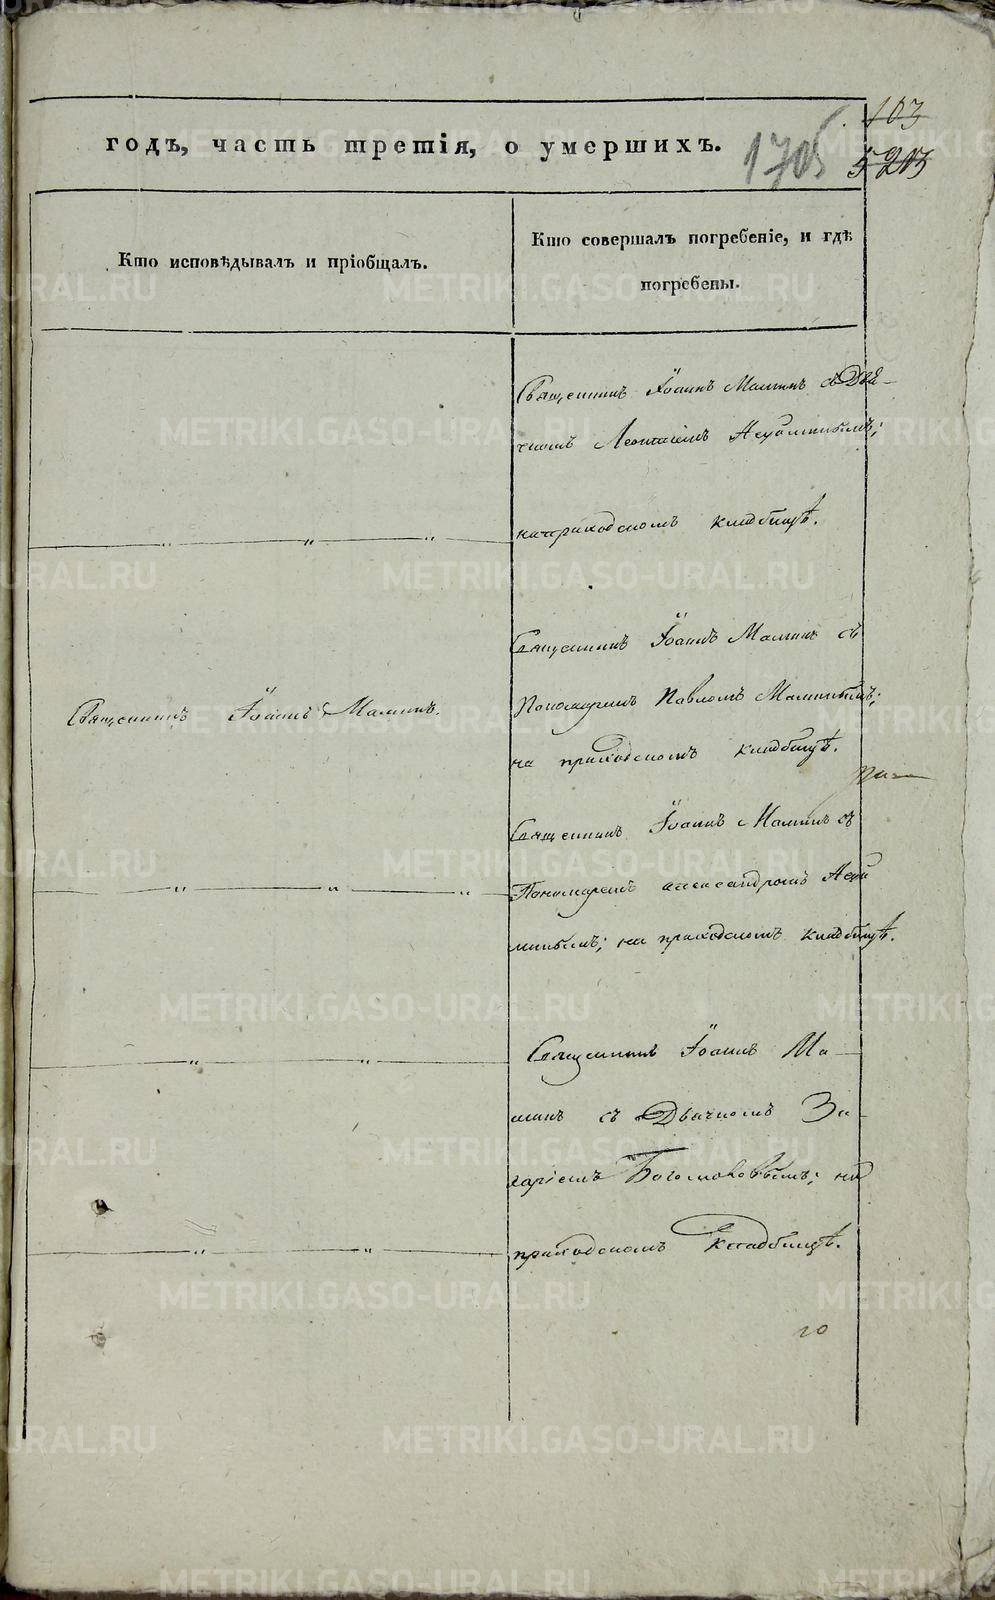 103
годъ, часть третія, о умершихъ.
1705
5 203
Кто исповѣдывалъ и пріобщалъ.
Кто совершалъ погребеніе, и гдѣ
погребены.
Священникъ Іоаннъ Маминъ съ Дья-
чкомъ Леонтіемъ
на приходскомъ кладбищѣ.
Священникъ Іоаннъ Маминъ съ
Священникъ Іоаннъ Маминъ.
Пономаремъ Павломъ Маминымъ;
на приходскомъ кладбищѣ.
Священникъ Іоаннъ Маминъ съ
Пономаремъ Александромъ
на приходскомъ кладбищѣ.
Священникъ Іоаннъ Ма-
минъ съ Дьячкомъ За-
харіемъ Богомоловымъ; на
приходскомъ кладбищѣ.
METRIKI.GASO-URAL.RU